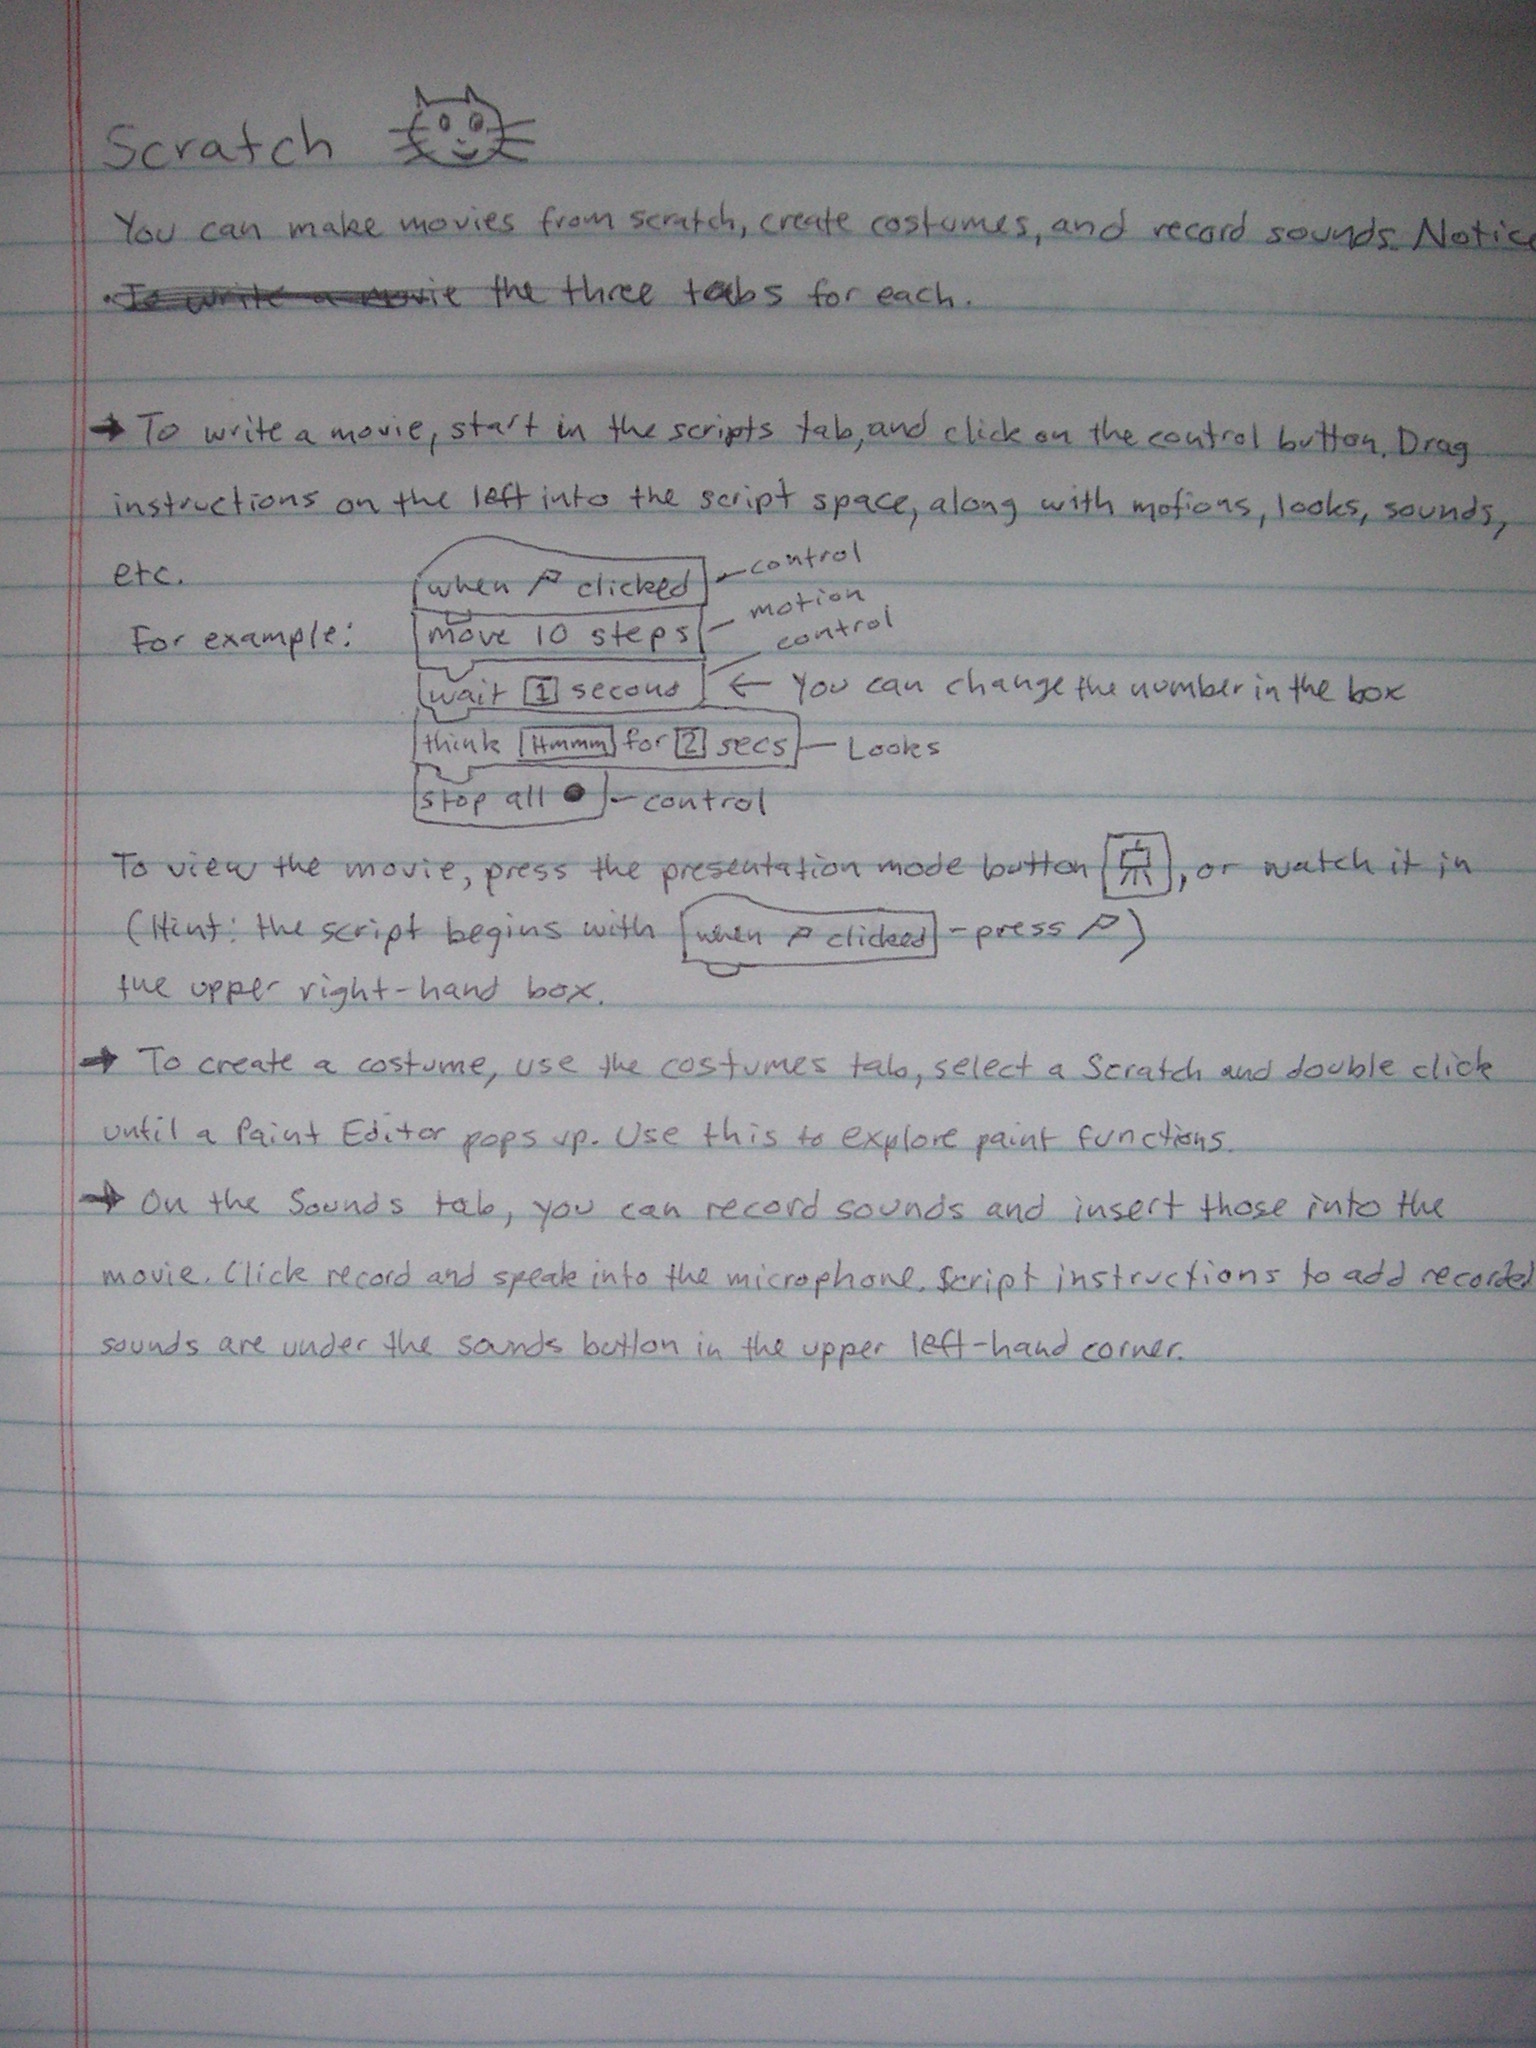 Scratch
You can make movies from scratch, create costumes, and record sounds. Notice
To write a movie the three tabs for each.
→ To write a movie, start in the scripts tab, and click on the control button. Drag
instructions on the left into the script space, along with motions, looks, sounds,
etc.
when clicked - control
For example: move 10 steps - motion
wait 1 second control ← You can change the number in the box
think Hmmm for 2 secs - Looks
stop all ● - control
To view the movie, press the presentation mode button, or watch it in
(Hint: the script begins with when clicked - press )
the upper right-hand box.
→ To create a costume, use the costumes tab, select a Scratch and double click
until a Paint Editor pops up. Use this to explore paint functions.
→ On the Sounds tab, you can record sounds and insert those into the
movie. Click record and speak into the microphone. Script instructions to add recorded
sounds are under the sounds button in the upper left-hand corner.